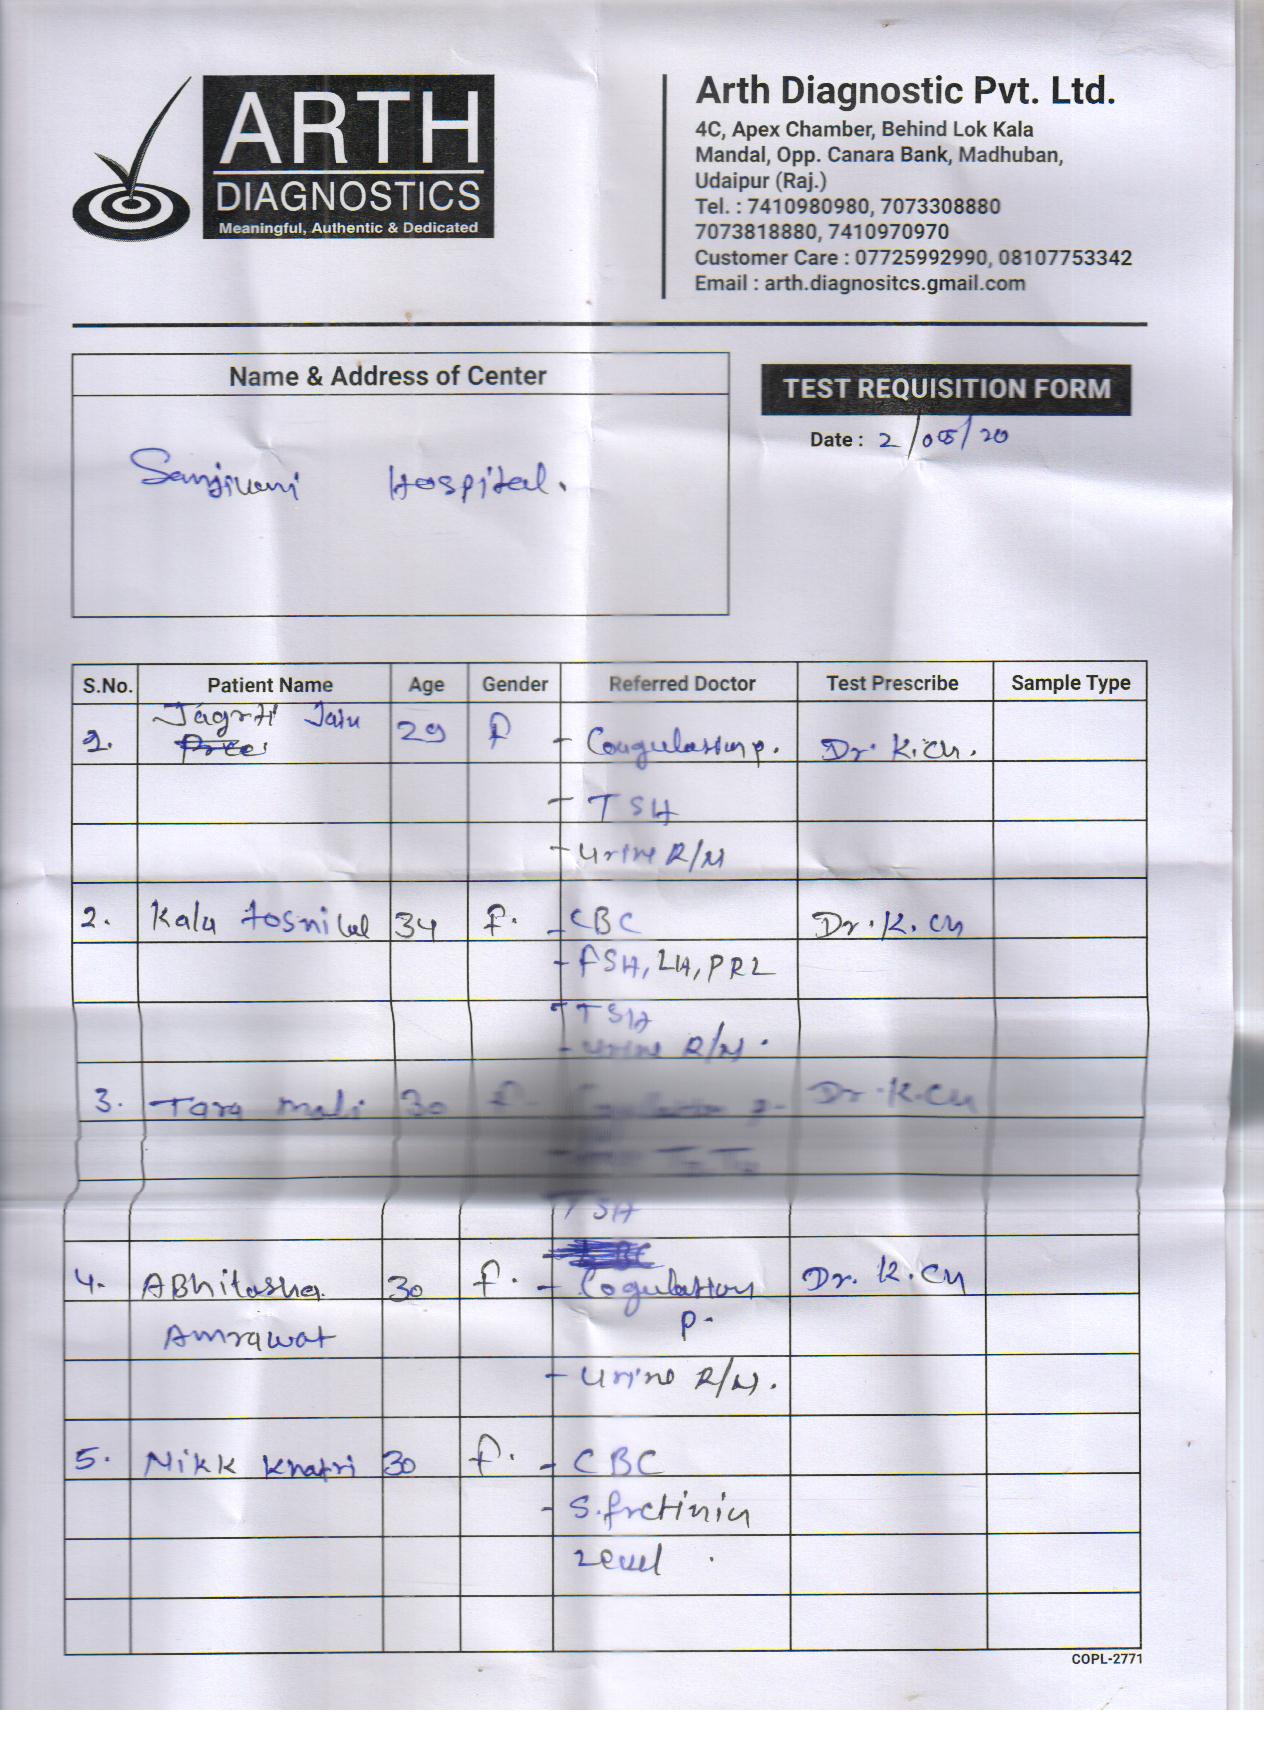 ARTH
DIAGNOSTICS
Meaningful, Authentic & Dedicated
Arth Diagnostic Pvt. Ltd.
4C, Apex Chamber, Behind Lok Kala
Mandal, Opp. Canara Bank, Madhuban,
Udaipur (Raj.)
Tel. : 7410980980, 7073308880
7073818880, 7410970970
Customer Care : 07725992990, 08107753342
Email : arth.diagnositcs.gmail.com
Name & Address of Center
TEST REQUISITION FORM
Date : 2/08/20
Sanjivani Hospital.
S.No. Patient Name Age Gender Referred Doctor Test Prescribe Sample Type
1. Jagrti Jain 29 F - Coagulation p. Dr. K.CM.
- TSH
- Urine R/M
2. Kala 34 F. - CBC Dr. K.CM
- FSH, LH, PRL
- TSH
- Urine R/M.
3. Tara Mali 30 F. p. Dr. K.CM
TSH
4. ABhilasha 30 F. - Cogulation Dr. K.CM
Amrawat p.
- Urine R/M.
5. Nikk Khatri 30 F. - CBC
- S.
Level
COPL-2771